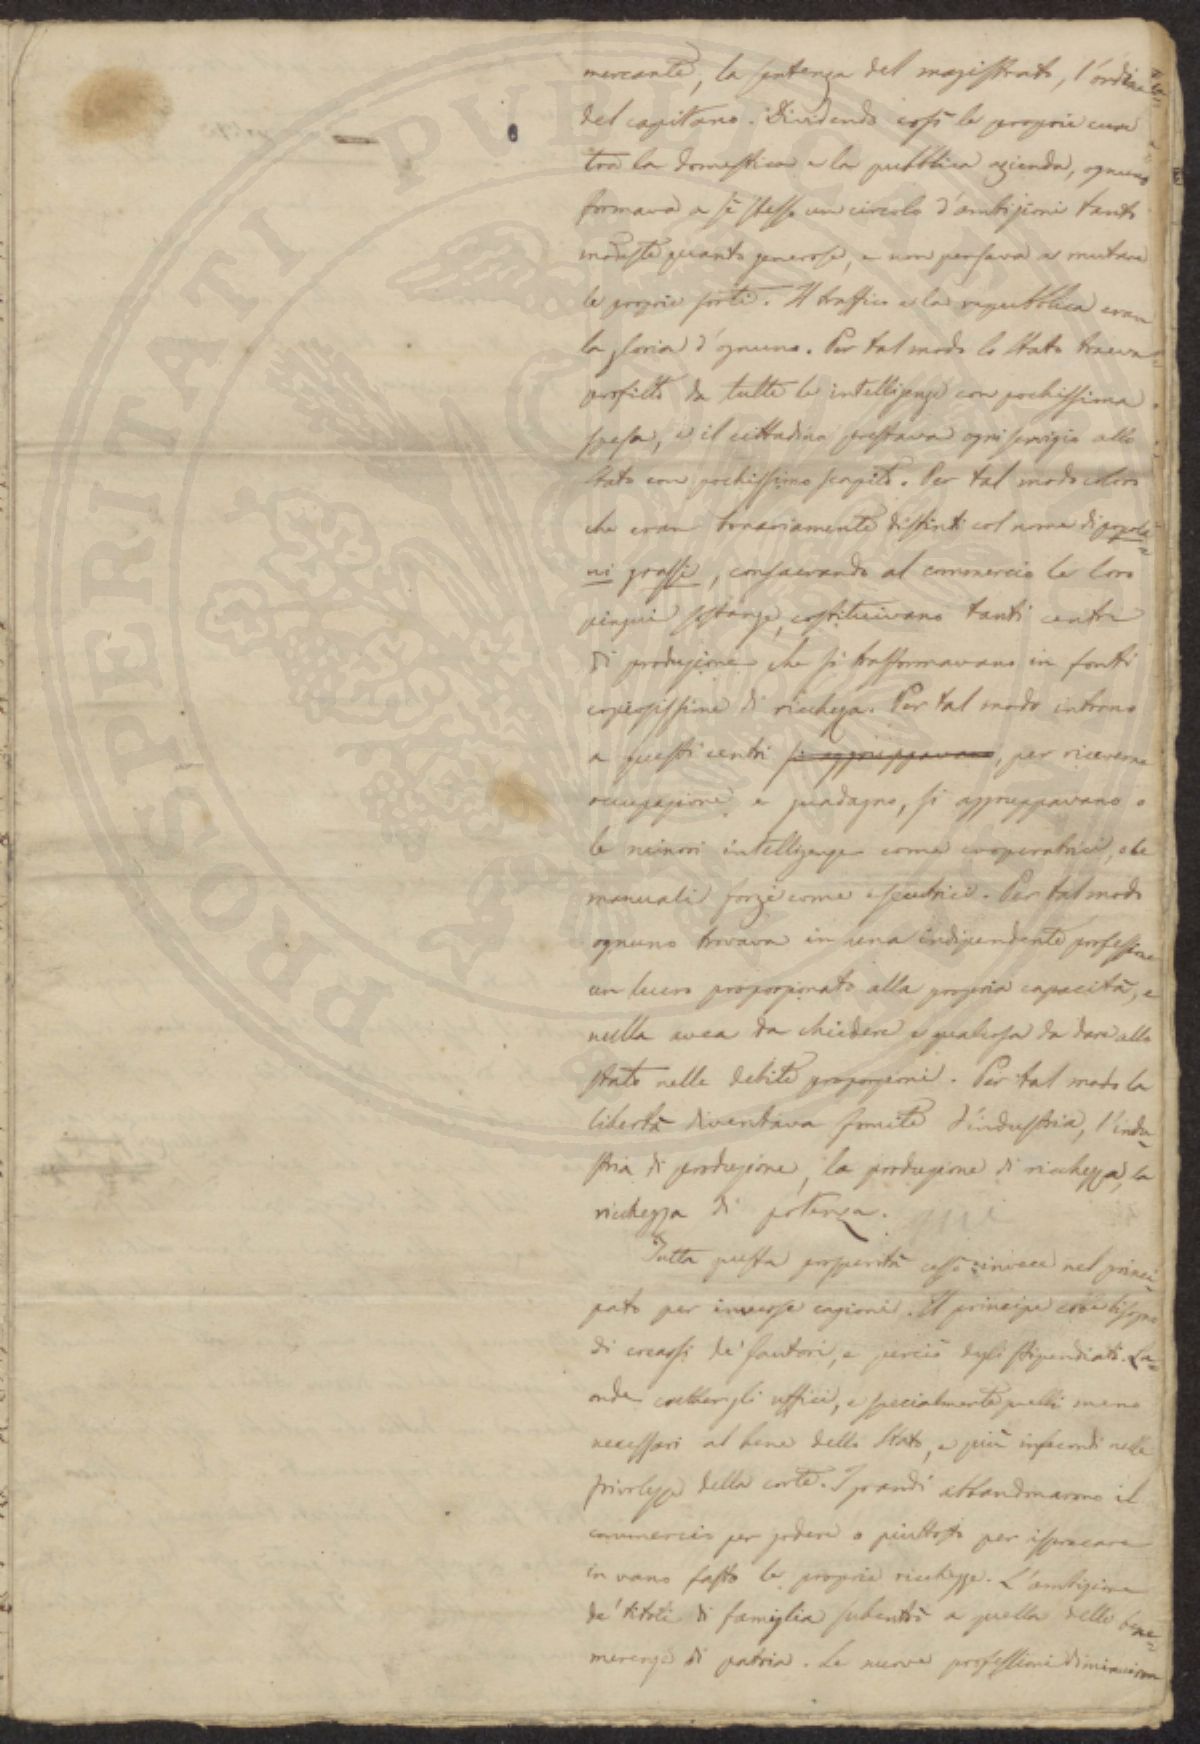 mercante, la sentenza del magistrato, l'ordine
del capitano. Dividendo così le proprie cure
tra la domestica e la pubblica azienda, ognuno
formava a sè stesso un circolo d'ambizioni tanto
modeste quanto generose, e non pensava a mutare
le proprie sorti. Il traffico e la repubblica eran
la gloria d'ognuno. Per tal modo lo Stato traeva
profitto da tutte le intelligenze con pochissima
spesa, e il cittadino prestava ogni servigio allo
Stato con pochissimo scapito. Per tal modo coloro
che eran bonariamente distinti col nome di popola=
ni grassi, consacrando al commercio le loro
pingui sostanze, costituivano tanti centri
di produzione che si trasformavano in fonti
copiosissime di ricchezza. Per tal modo intorno
a questi centri si aggruppavano, per riceverne
occupazione e guadagno, si aggruppavano o
le minori intelligenze come cooperatrici, o le
manuali forze come esecutrici. Per tal modo
ognuno trovava in una indipendente professione
un lucro proporzionato alla propria capacità, e
nulla avea da chiedere e qualcosa da dare allo
stato nelle debite proporzioni. Per tal modo la
libertà diventava fomite d'industria, l'indu=
stria di produzione, la produzione di ricchezza, la
ricchezza di potenza. qui
Tutta questa prosperità cessò invece nel princi=
pato per inverse cagioni. Il principe ebbe bisogno
di crearsi de' fautori, e perciò degli stipendiati. La=
onde crebber gli uffici, e specialmente quelli meno
necessari al bene dello Stato, e più infecondi nelle
frivolezze della corte. I grandi abbandonarono il
commercio per godere o piuttosto per isprecare
in vano fasto le proprie ricchezze. L'ambizione
de' titoli di famiglia subentrò a quella delle bene=
merenze di patria. Le nuove professioni diminuiron
PROSPERITATI PUBLICAE